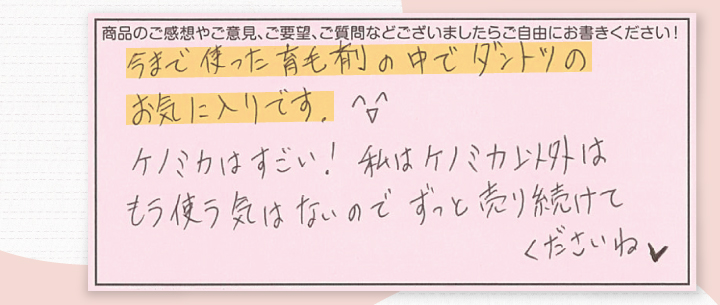 商品のご感想やご意見、ご要望、ご質問などございましたらご自由にお書きください!
今まで使った育毛剤の中でダントツの
お気に入りです。
ケノミカはすごい! 私はケノミカ以外は
もう使う気はないのでずっと売り続けて
くださいね